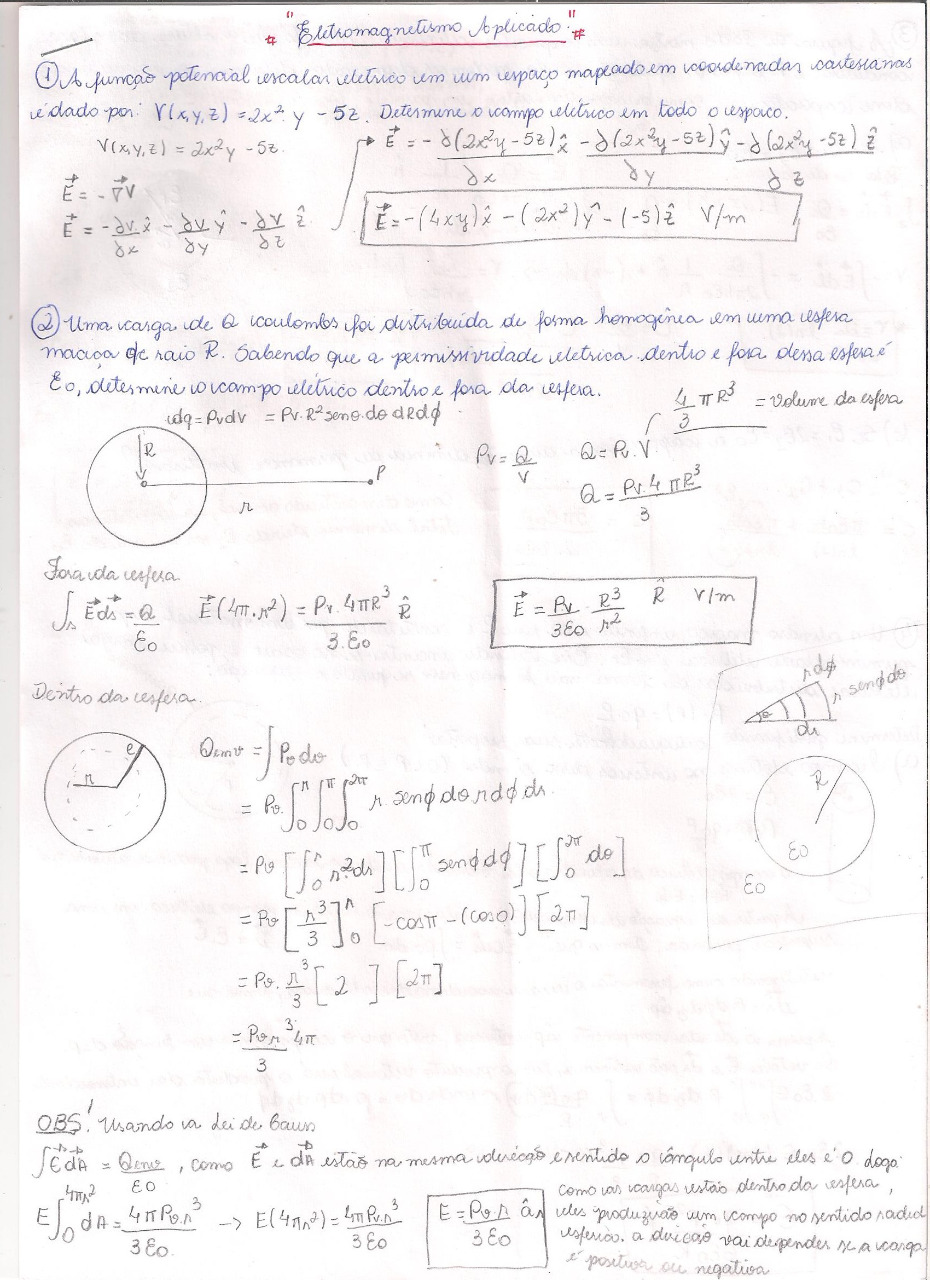 "Eletromagnetismo Aplicado"
① A função potencial escalar elétrico em um espaço mapeado em coordenadas cartesianas
é dado por: V(x,y,z) = 2x²·y - 5z. Determine o campo elétrico em todo o espaço.
V(x,y,z) = 2x²y - 5z.
E⃗ = -∇⃗V
E⃗ = -∂V/∂x x̂ - ∂V/∂y ŷ - ∂V/∂z ẑ
→ E⃗ = -∂(2x²y - 5z)/∂x x̂ - ∂(2x²y - 5z)/∂y ŷ - ∂(2x²y - 5z)/∂z ẑ
E⃗ = -(4xy)x̂ - (2x²)ŷ - (-5)ẑ V/m
② Uma carga de Q coulombs foi distribuída de forma homogênia em uma esfera
maciça de raio R. Sabendo que a permissividade eletrica dentro e fora dessa esfera é
Eo, determine o campo elétrico dentro e fora da esfera.
dq = Pv dv = Pv·R² senθ·dθ dR dϕ
R
r
P
Pv = Q/V
Q = Pv·V
4/3 πR³ = Volume da esfera
Q = Pv·4πR³/3
Fora da esfera
∫s E⃗ ds⃗ = Q/Eo
E⃗(4π·r²) = Pv·4πR³/3·Eo R̂
E⃗ = Pv/3Eo · R³/r² R̂ V/m
Dentro da esfera.
r
Qenv = ∫Pv dv
= Pv ∫₀ʳ ∫₀^π ∫₀^2π r senϕ dθ r dϕ dr
= Pv [∫₀ʳ r² dr] [∫₀^π senϕ dϕ] [∫₀^2π dθ]
= Pv [r³/3]₀ʳ [-cosπ - (cos0)] [2π]
= Pv·r³/3 [2] [2π]
= Pv·r³ 4π/3
r dϕ
r senϕ dθ
dr
R
Eo
Eo
OBS! Usando a Lei de Gauss
∫E⃗ dA⃗ = Qenv/Eo, como E⃗ e dA⃗ estão na mesma direção e sentido o ângulo entre eles é 0. Logo:
E∫₀^4πr² dA = 4πPv·r³/3Eo → E(4πr²) = 4πPv·r³/3Eo
E = Pv·r/3Eo âr
como as cargas estão dentro da esfera,
eles produzirão um campo no sentido radial
esférico. a direção vai depender se a carga
é positiva ou negativa